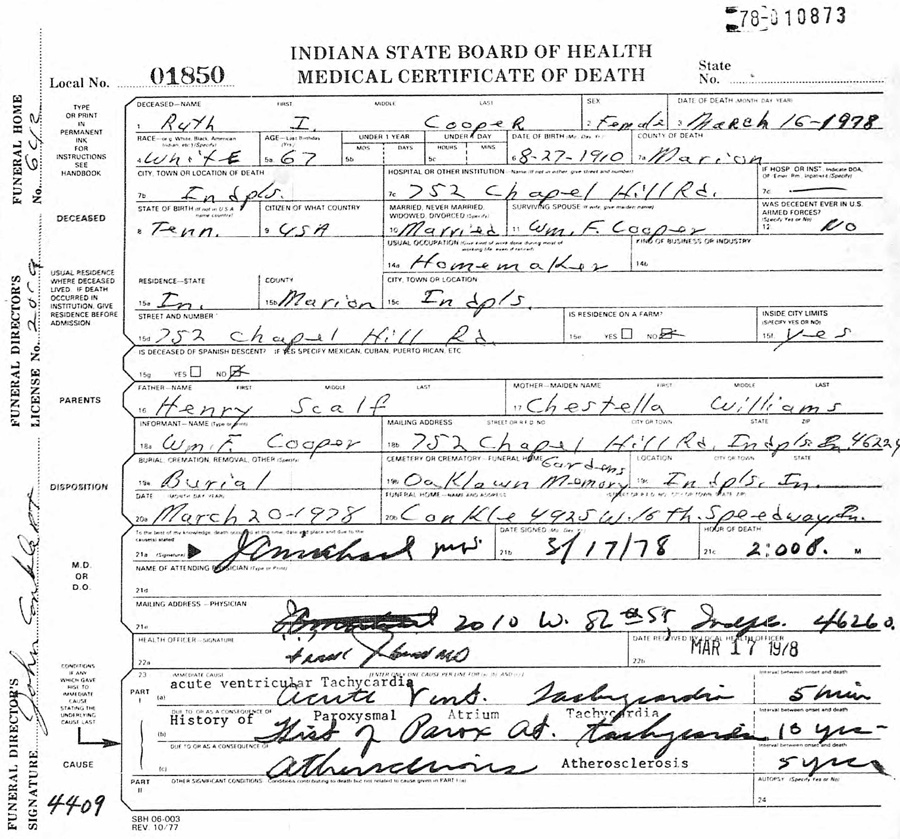 78-010873
INDIANA STATE BOARD OF HEALTH
MEDICAL CERTIFICATE OF DEATH
Local No. 01850
State No.
TYPE OR PRINT IN PERMANENT INK FOR INSTRUCTIONS SEE HANDBOOK
DECEASED—NAME FIRST MIDDLE LAST SEX DATE OF DEATH (MONTH, DAY, YEAR)
1 Ruth I. Cooper 2 Female 3 March 16-1978
RACE—(e.g. White, Black, American Indian, etc.) (Specify) AGE—Last Birthday (Yrs.) UNDER 1 YEAR UNDER 1 DAY DATE OF BIRTH (Mo. Day, Yr.) COUNTY OF DEATH
MOS DAYS HOURS MINS
4 White 5a 67 5b 5c 6 8-27-1910 7a Marion
CITY, TOWN OR LOCATION OF DEATH HOSPITAL OR OTHER INSTITUTION—Name (If not in either, give street and number) IF HOSP. OR INST. Indicate DOA, OP/Emer. Rm., Inpatient (Specify)
7b Indpls. 7c 752 Chapel Hill Rd. 7c —
DECEASED
STATE OF BIRTH (If not in U.S.A. name country) CITIZEN OF WHAT COUNTRY MARRIED, NEVER MARRIED, WIDOWED, DIVORCED (Specify) SURVIVING SPOUSE (If wife, give maiden name) WAS DECEDENT EVER IN U.S. ARMED FORCES? (Specify Yes or No)
8 Tenn. 9 USA 10 Married 11 Wm. F. Cooper 12 No
USUAL OCCUPATION (Give kind of work done during most of working life, even if retired) KIND OF BUSINESS OR INDUSTRY
14a Homemaker 14b
USUAL RESIDENCE WHERE DECEASED LIVED. IF DEATH OCCURRED IN INSTITUTION, GIVE RESIDENCE BEFORE ADMISSION
RESIDENCE—STATE COUNTY CITY, TOWN OR LOCATION
15a In. 15b Marion 15c Indpls.
STREET AND NUMBER IS RESIDENCE ON A FARM? INSIDE CITY LIMITS (SPECIFY YES OR NO)
15d 752 Chapel Hill Rd. 15e YES NO 15f yes
IS DECEASED OF SPANISH DESCENT? IF YES SPECIFY MEXICAN, CUBAN, PUERTO RICAN, ETC
15g YES NO
PARENTS
FATHER—NAME FIRST MIDDLE LAST MOTHER—MAIDEN NAME FIRST MIDDLE LAST
16 Henry Scalf 17 Chestella Williams
INFORMANT—NAME (Type or Print) MAILING ADDRESS STREET OR R.F.D. NO. CITY OR TOWN STATE ZIP
18a Wm. F. Cooper 18b 752 Chapel Hill Rd. Indpls. In. 46224
DISPOSITION
BURIAL, CREMATION, REMOVAL, OTHER (Specify) CEMETERY OR CREMATORY—FUNERAL HOME LOCATION CITY OR TOWN STATE
19a Burial 19b Oaklawn Memory Gardens 19c Indpls. In.
DATE (MONTH, DAY, YEAR) FUNERAL HOME—NAME AND ADDRESS
20a March 20-1978 20b Conkle 4925 W. 16th. Speedway, In.
To the best of my knowledge, death occurred at the time, date and place and due to the cause(s) stated DATE SIGNED (Mo. Day, Yr.) HOUR OF DEATH
21a (Signature) 21b 3/17/78 21c 2:00 M
M.D. OR D.O.
NAME OF ATTENDING PHYSICIAN (Type or Print)
21d
MAILING ADDRESS—PHYSICIAN
21e 2010 W. 86th St, Indpls. 46260
HEALTH OFFICER—SIGNATURE DATE RECEIVED BY LOCAL HEALTH OFFICER
22a 22b MAR 17 1978
CONDITIONS IF ANY WHICH GAVE RISE TO IMMEDIATE CAUSE STATING THE UNDERLYING CAUSE LAST
23 IMMEDIATE CAUSE (ENTER ONLY ONE CAUSE PER LINE FOR (a), (b) AND (c)) Interval between onset and death
PART I (a) acute ventricular Tachycardia
Acute Vent. Tachycardia 5 min
DUE TO OR AS A CONSEQUENCE OF Interval between onset and death
History of Paroxysmal Atrium Tachycardia
(b) Hist of Parox At. tachycardia 10 yrs
DUE TO OR AS A CONSEQUENCE OF Interval between onset and death
(c) Atherosclerosis Atherosclerosis 5 yrs
CAUSE
PART II OTHER SIGNIFICANT CONDITIONS Conditions contributing to death but not related to cause given in PART I (a) AUTOPSY (Specify Yes or No)
24
SBH 06-003
REV. 10/77
FUNERAL HOME No.
FUNERAL DIRECTOR'S LICENSE No.
FUNERAL DIRECTOR'S SIGNATURE
4409